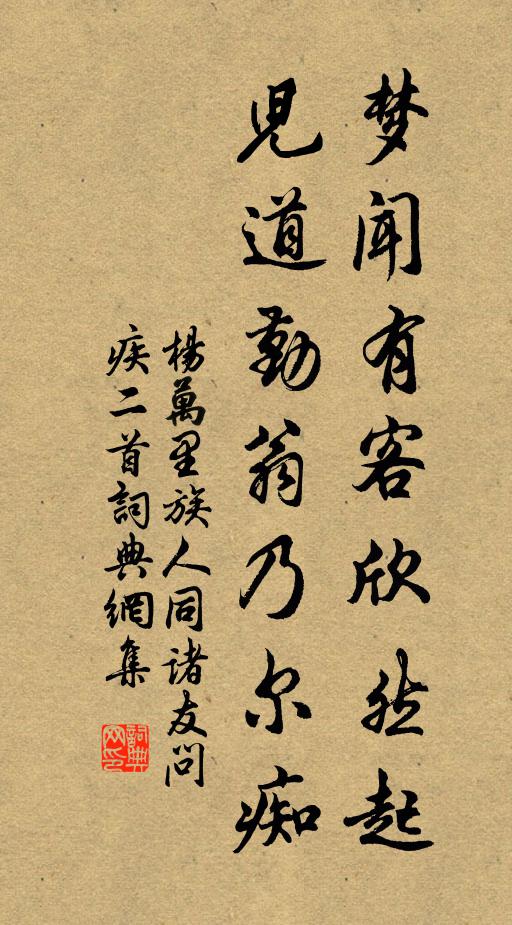 梦闻有客欣然起
児道勤翁乃尔痴
楊萬里族人同诸友问
疾二首詞典網集
詞典
网印